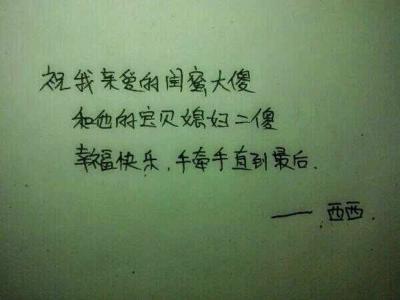 祝我亲爱的闺蜜大傻
和他的宝贝媳妇二傻
幸福快乐,手牵手直到最后.
—— 西西.